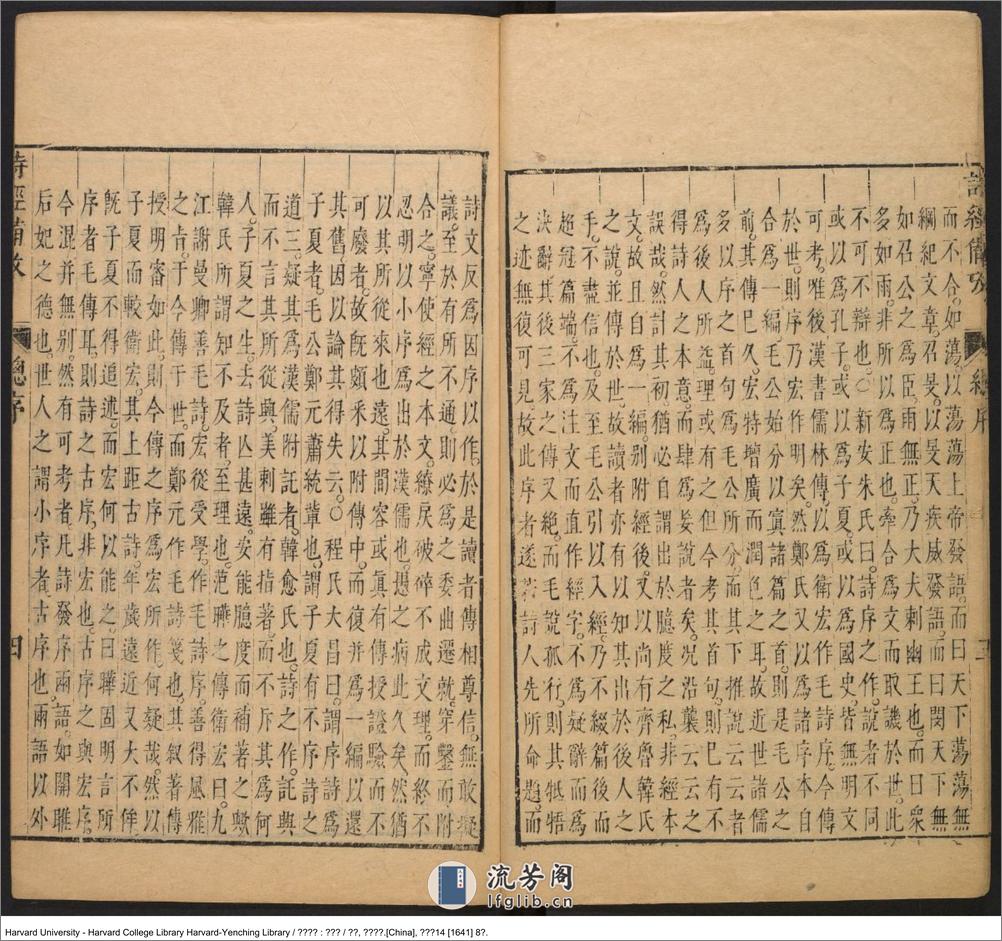 詩經備攷 總序
而不合如蕩以蕩蕩上帝發語而曰天下蕩蕩無
綱紀文章召旻以旻天疾威發語而曰閔天下無
如召公之爲臣雨無正乃大夫刺幽王也而曰衆
多如雨非所以爲正也牽合爲文而取譏於世此
不可不辯也○新安朱氏曰詩序之作說者不同
或以爲孔子或以爲子夏或以爲國史皆無明文
可考唯後漢書儒林傳以爲衛宏作毛詩序今傳
於世則序乃宏作明矣然鄭氏又以爲諸序本自
合爲一編毛公始分以寘諸篇之首則是毛公之
前其傳已久宏特增廣而潤色之耳故近世諸儒
多以序之首句爲毛公所分而其下推說云云者
爲後人所益理或有之但今考其首句則已有不
得詩人之本意而肆爲妄說者矣況沿襲云云之
誤哉然計其初猶必自謂出於臆度之私非經本
文故且自爲一編別附經後又以尚有齊魯韓氏
之說並傳於世故讀者亦有以知其出於後人之
手不盡信也及至毛公引以入經乃不綴篇後而
超冠篇端不爲注文而直作經字不爲疑辭而爲
決辭其後三家之傳又絶而毛說孤行則其牴牾
之迹無復可見故此序者遂若詩人先所命題而
詩文反爲因序以作於是讀者傳相尊信無敢擬
議至於有所不通則必爲之委曲遷就穿鑿而附
合之寧使經之本文繚戾破碎不成文理而終不
忍明以小序爲出於漢儒也愚之病此久矣然猶
以其所從來也遠其間容或真有傳授證驗而不
可廢者故旣頗采以附傳中而復并爲一編以還
其舊因以論其得失云○程氏大昌曰謂序詩之
子夏者毛公鄭元蕭統輩也謂子夏有不序詩之
道三疑其爲漢儒附託者韓愈氏也詩之作託與
而不言其所從與美刺雖有指著而不斥其爲何
人子夏之生去詩亾甚遠安能臆度而補著之歟
韓氏所謂知不及者至理也范曄之傳衛宏曰九
江謝曼卿善毛詩宏從受學作毛詩序善得風雅
之㫖于今傳于世而鄭元作毛詩箋也其叙著傳
授明審如此則今傳之序爲宏所作何疑哉然以
子夏而較衛宏其上距古詩年歲遠近又大不侔
旣子夏不得追述而宏何以能之曰曄固明言所
序者毛傳耳則詩之古序非宏也古序之與宏序
今混并無別然有可考者凡詩發序兩語如關雎
后妃之德也世人之謂小序者古序也兩語以外
詩經備攷 總序 四
流芳阁
lfglib.cn
Harvard University - Harvard College Library Harvard-Yenching Library / ???? : ??? / ??, ????.[China], ???14 [1641] 8?.